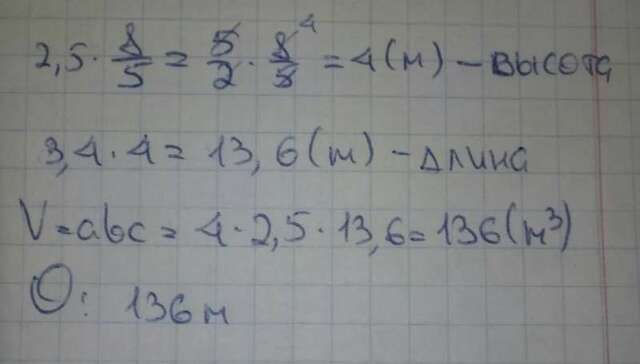 2,5 · 8/5 = 5/2 · 8/5 4 = 4 (м) – высота
3,4 · 4 = 13,6 (м) – длина
V = abc = 4 · 2,5 · 13,6 = 136 (м³)
О: 136 м